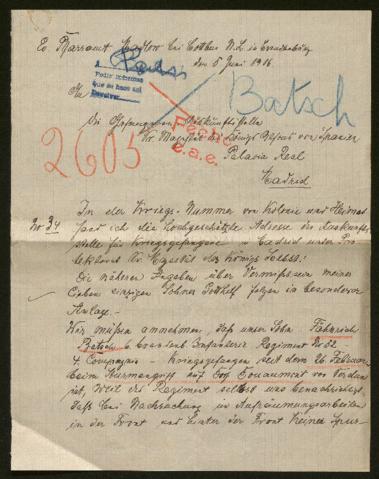 Ev. Pfarramt bei Cottbus N.L. in Brandenburg
den 5 Juni 1916
A
Pedir informes
que se haga así
Devolver
An
Batsch
Die Gefangenen Auskunftstelle
Sr. Majestät des Königs von Spanien
2605
Fecha
c.a.e.
Palacio Real
Madrid
In der Kriegs-Nummer von Kolonie und Heimat
No 34
fand ich die hochgeschätzte Adresse der Auskunft-
stelle für Kriegsgefangene in Madrid unter Pro-
tektorat Sr. Majestät des Königs selbst!
Die näheren Angaben über Vermißtsein meines
lieben einzigen Sohnes Gotthelf folgen in besonderer
Anlage.-
Wir müssen annehmen, daß unser Sohn Fähnrich
Batsch 6 Brandenb Infanterie Regiment No 52
4 Compagnie - kriegsgefangen seit dem 26 Februar
beim Sturmangriff auf Fort Douaumont vor Verdun
ist, weil das Regiment selbst uns benachrichtigt
daß bei Nachsuchung u. Aufräumungsarbeiten
in der Front und hinter der Front keine Spur-